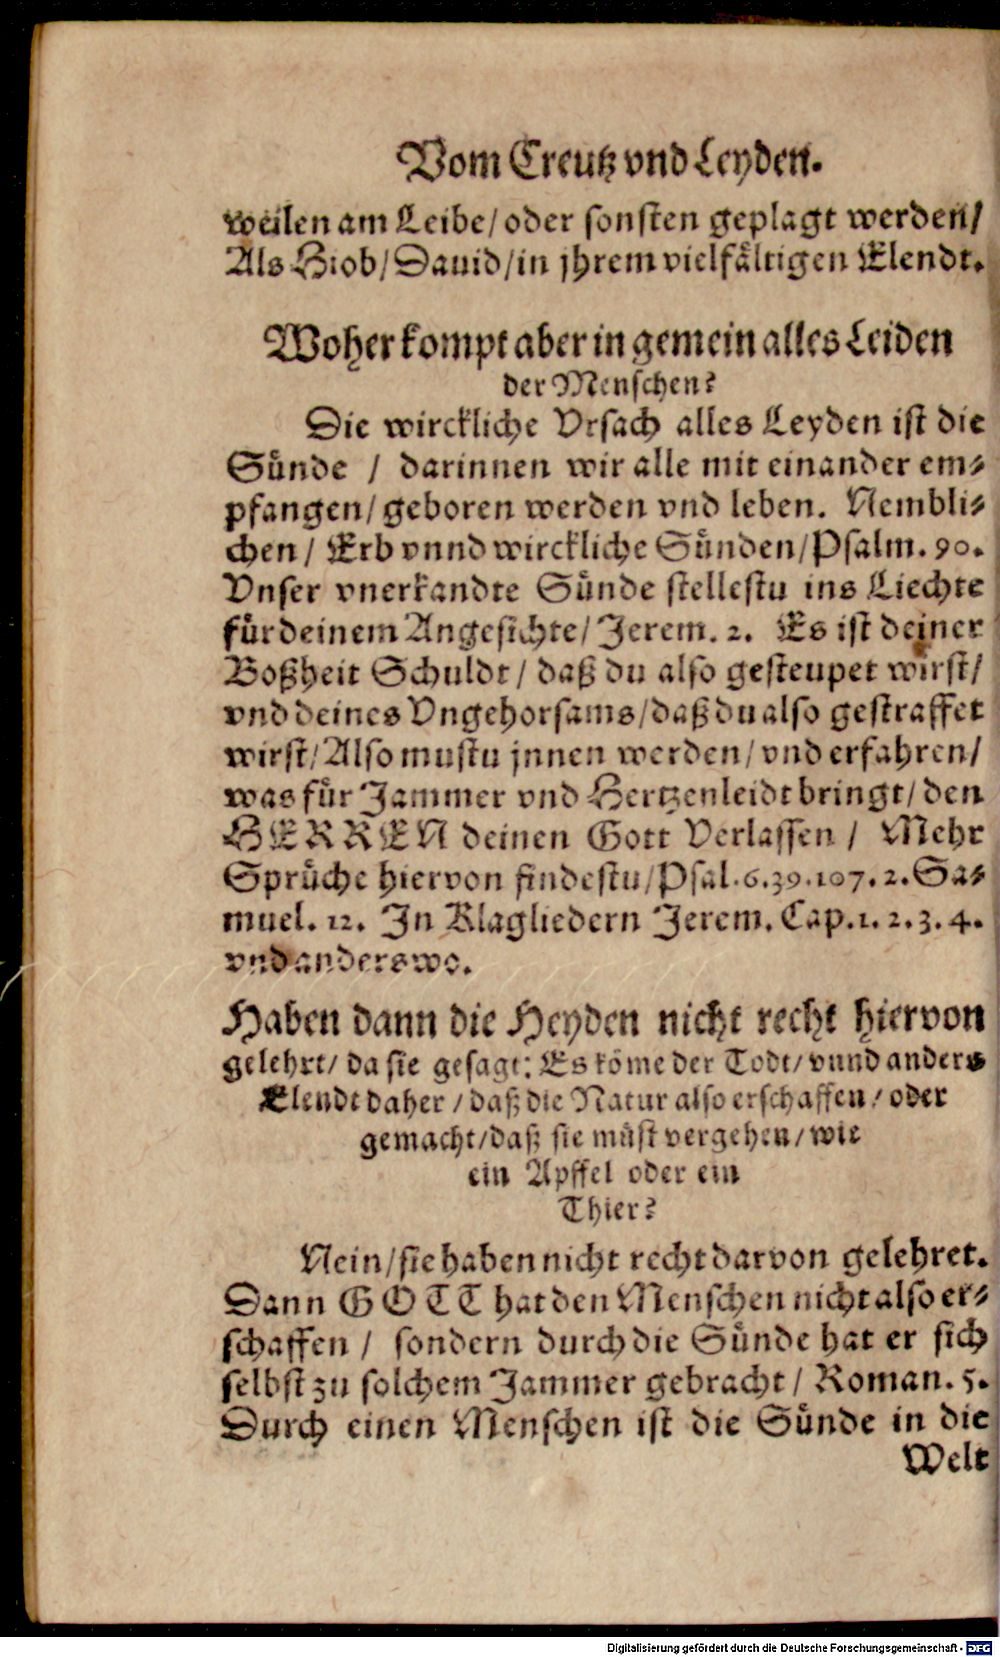 Vom Creutz vnd Leyden.
weilen am Leibe/ oder sonsten geplagt werden/
Als Hiob/ Dauid/ in jhrem vielfältigen Elendt.
Woher kompt aber in gemein alles Leiden
der Menschen?
Die wirckliche Vrsach alles Leyden ist die
Sünde / darinnen wir alle mit einander em⸗
pfangen/ geboren werden vnd leben. Nembli⸗
chen/ Erb vnnd wirckliche Sünden/ Psalm. 90.
Vnser vnerkandte Sünde stellestu ins Liechte
für deinem Angesichte/ Jerem. 2. Es ist deiner
Boßheit Schuldt/ daß du also gesteupet wirst/
vnd deines Vngehorsams/ daß du also gestraffet
wirst/ Also mustu jnnen werden/ vnd erfahren/
was für Jammer vnd Hertzenleidt bringt/ den
HERREN deinen Gott Verlassen / Mehr
Sprüche hiervon findestu/ Psal. 6. 39. 107. 2. Sa⸗
muel. 12. In Klagliedern Jerem. Cap. 1. 2. 3. 4.
vnd anderswo.
Haben dann die Heyden nicht recht hiervon
gelehrt/ da sie gesagt: Es köme der Todt/ vnnd anders
Elendt daher / daß die Natur also erschaffen / oder
gemacht/ daß sie müst vergehen/ wie
ein Apffel oder ein
Thier?
Nein/ sie haben nicht recht darvon gelehret.
Dann GOTT hat den Menschen nicht also er⸗
schaffen / sondern durch die Sünde hat er sich
selbst zu solchem Jammer gebracht/ Roman. 5.
Durch einen Menschen ist die Sünde in die
Welt
Digitalisierung gefördert durch die Deutsche Forschungsgemeinschaft - DFG